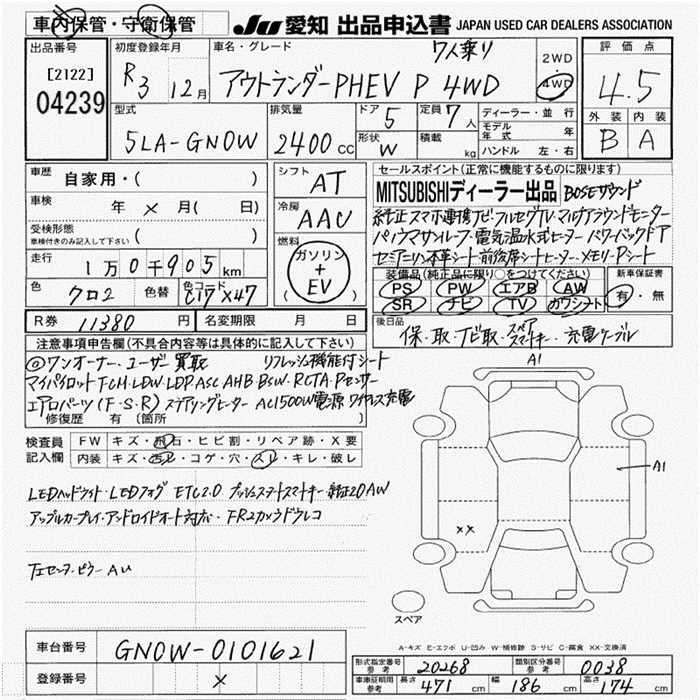 車内保管・守衛保管
JU 愛知 出品申込書 JAPAN USED CAR DEALERS ASSOCIATION
出品番号
[2122]
04239
初度登録年月
R3 12月
車名・グレード
7人乗り
アウトランダーPHEV P 4WD
2WD
4WD
評価点
4.5
外装 内装
B A
型式
5LA-GN0W
排気量
2400cc
ドア 5
形状 W
定員 7人
積載 kg
ディーラー・並行
モデル年式 年
ハンドル 左・右
車歴
自家用・( )
車検
年 × 月( 日)
受検形態
車検付きのみ記入して下さい ( )
走行
1万0千905km
色
クロ2
色替
色コード
C17 X47
シフト
AT
冷房
AAC
燃料
ガソリン
+
EV
セールスポイント(正常に機能するものに限ります)
MITSUBISHIディーラー出品 BOSEサウンド
純正スマホ連携ナビ・フルセグTV・マルチアラウンドモニター
パノラマサンルーフ・電気温水式ヒーター パワーバックドア
セミアニリン本革シート・前後席シートヒーター・メモリーPシート
装備品(純正品に限り○をつけてください)
PS PW エアB AW
SR ナビ TV カワシート
新車保証書
有・無
R券 11380 円
名変期限 月 日
後日品
保・取・ナビ取・スペアスマートキー・充電ケーブル
注意事項申告欄(不具合内容等は具体的に記入して下さい)
◎ワンオーナー・ユーザー買取 リフレッシュ機能付シート
マイパイロット・FCM・LDW・LDP・ASC・AHB・BSW・RCTA・Pセンサー
エアロパーツ(F・S・R) ステアリングヒーター AC1500W電源 ワイヤレス充電
修復歴 有 〔箇所 〕
検査員記入欄
FW キズ・飛石・ヒビ割・リペア跡・X要
内装 キズ・汚レ・コゲ・穴・スレ・キレ・破レ
LEDヘッドライト・LEDフォグ ETC2.0 プッシュスタートスマートキー・純正20AW
アップルカープレイ・アンドロイドオート対応・FR2カメラドラレコ
A1
A1
××
スペア
A-キズ E-エクボ U-凹み W-補修跡 S-サビ C-腐食 XX-交換済
車台番号
GN0W-0101621
登録番号
×
形式指定番号 参考 20268
類別区分番号 参考 0038
車庫証明用 参考 長さ 471 cm 幅 186 cm 高さ 174 cm